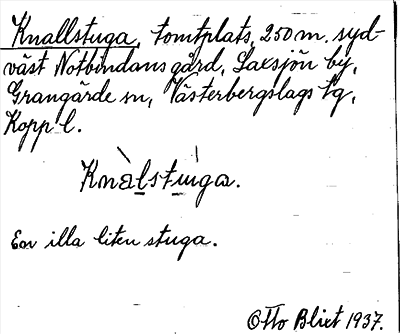 Knallstuga, tomtplats, 250 m. syd-
väst Notbindans gård, Laxsjön by,
Grangärde sn, Västerbergslags tg,
Kopp l.
Knàlstuiga.
En illa liten stuga.
Otto Blixt 1937.